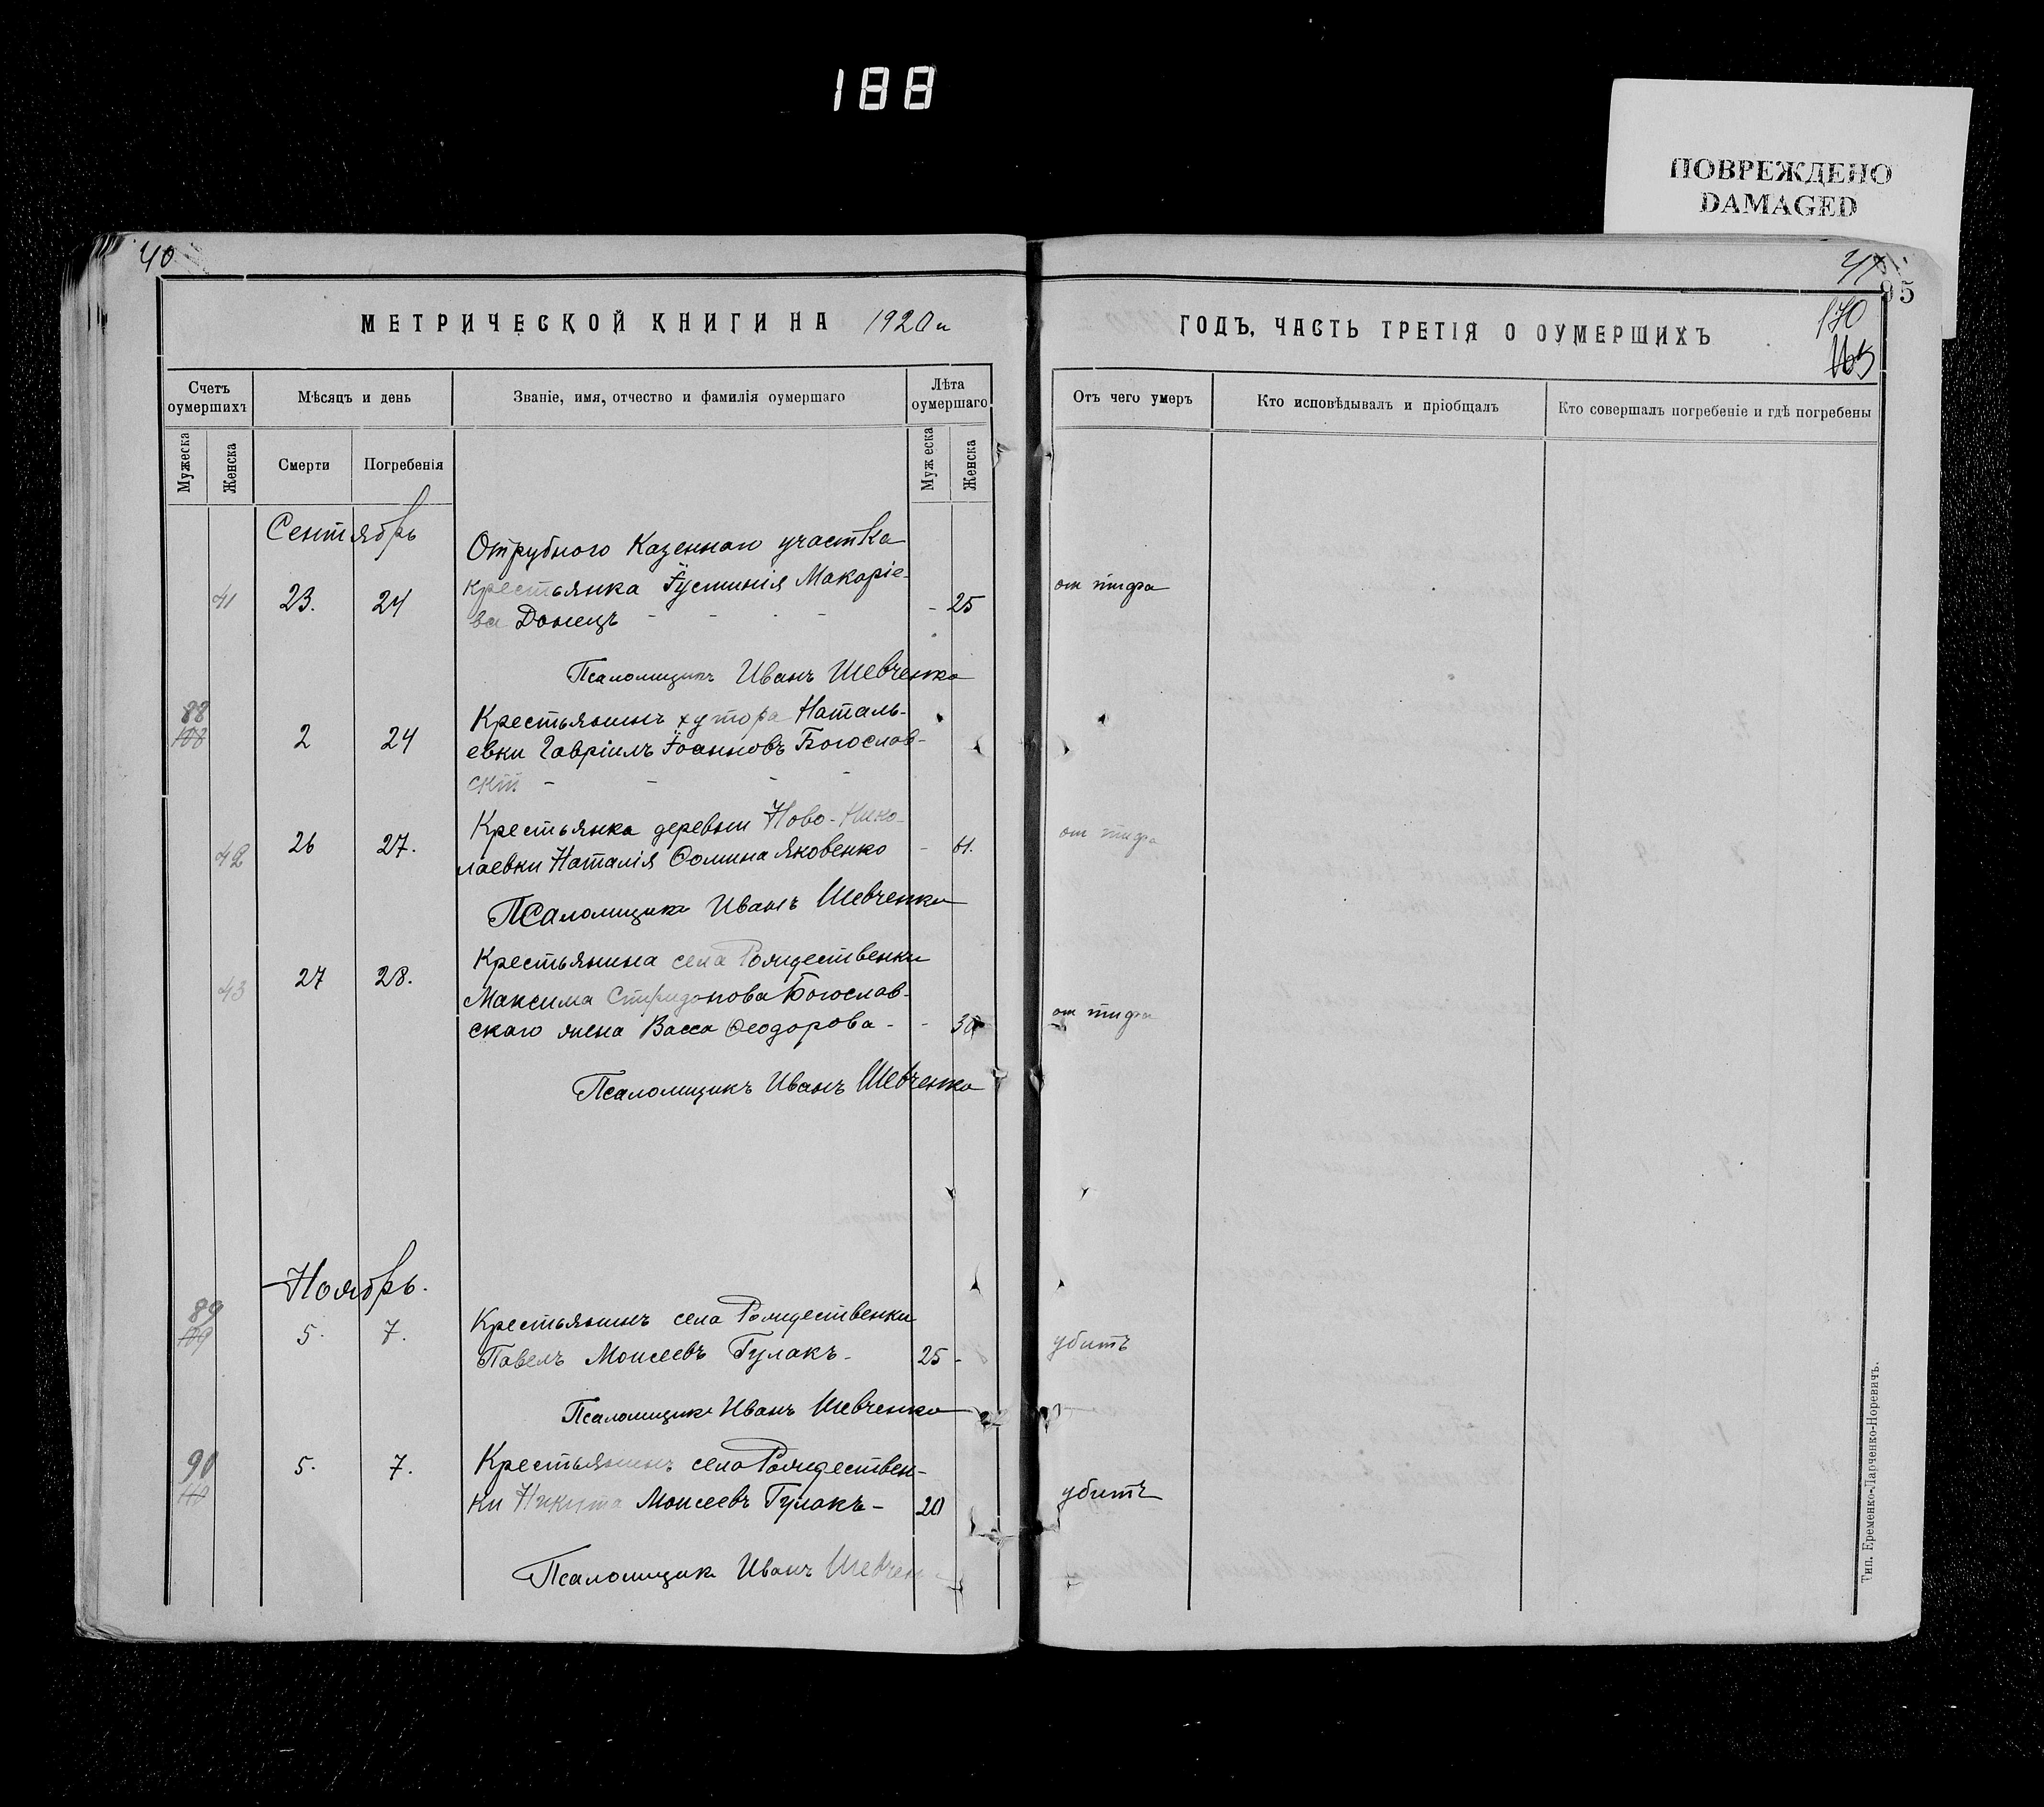 188
ПОВРЕЖДЕНО
DAMAGED
40
МЕТРИЧЕСКОЙ КНИГИ НА 1920й
Счетъ оумершихъ
Мѣсяцъ и день
Званіе, имя, отчество и фамилія оумершаго
Лѣта оумершаго
Мужеска
Женска
Смерти
Погребенія
Мужеска
Женска
Сентябрь
Отрубного Казеннаго участка
41 23. 24 крестьянка Іустинія Макаріе-
ва Донецъ - - - - - 25
Псаломщикъ Иванъ Шевченко
88
108 2 24 Крестьянинъ хутора Наталь-
евки Гавріилъ Іоанновъ Богослов-
скій - - - -
42 26 27. Крестьянка деревни Ново-Нико-
лаевки Наталія Ѳомина Яковенко - 61.
Псаломщикъ Иванъ Шевченко
43 27 28. Крестьянина села Рождественки
Максима Спиридонова Богослов-
скаго жена Васса Ѳеодорова - - 30
Псаломщикъ Иванъ Шевченко
Ноябрь.
89
109 5. 7. Крестьянинъ села Рождественки
Павелъ Моисеевъ Гулакъ - 25 -
Псаломщикъ Иванъ Шевченко
90
110 5. 7. Крестьянинъ села Рождествен-
ки Никита Моисеевъ Гулакъ - 20
Псаломщикъ Иванъ Шевчен
41
95
170
ГОДЪ, ЧАСТЬ ТРЕТІЯ О ОУМЕРШИХЪ
Отъ чего умеръ
Кто исповѣдывалъ и пріобщалъ
Кто совершалъ погребеніе и гдѣ погребены
от тифа
от тифа
от тифа
убитъ
убитъ
Тип. Еременко-Ларченко-Норевичъ.